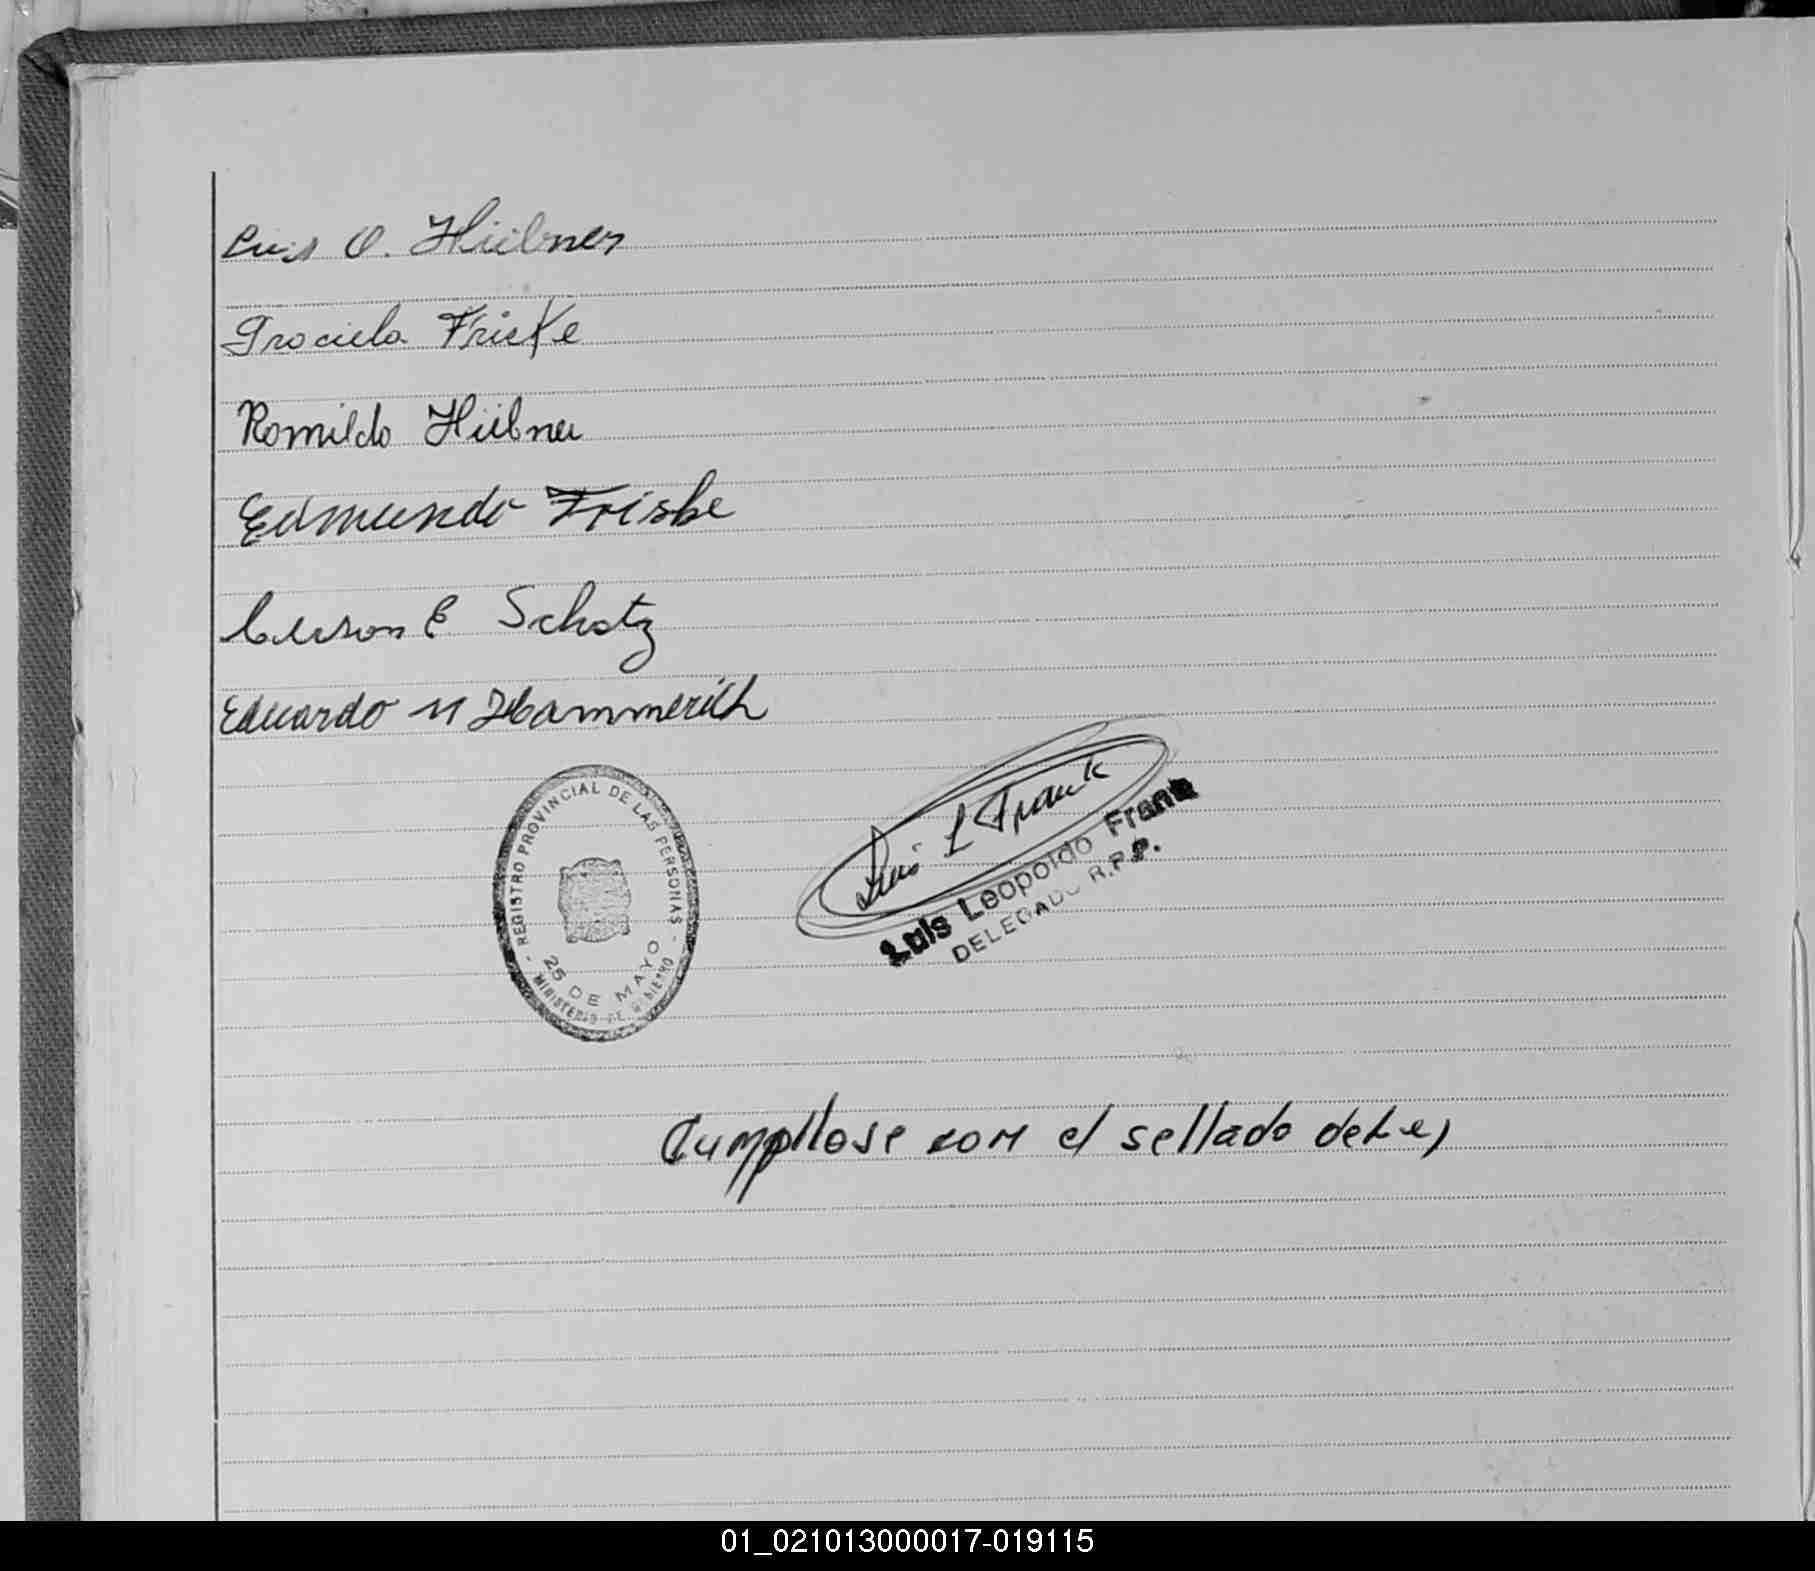 Luis O. Hübner
Graciela Friske
Romildo Hübner
Edmundo Friske
Schatz
Eduardo M Hammerich
REGISTRO PROVINCIAL DE LAS PERSONAS
25 DE MAYO
MINISTERIO DE GOBIERNO
Luis L Frank
Luis Leopoldo Frank
DELEGADO R.P.P.
Cumpllose con el sellado de Ley
01_021013000017-019115